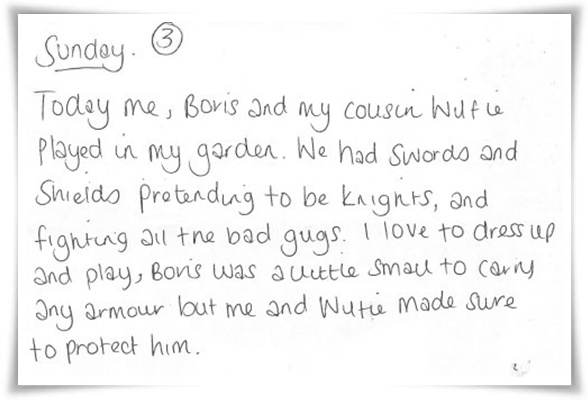 Sunday. 3
Today me, Boris and my cousin Wulfie
Played in my garden. We had swords and
Shields pretending to be knights, and
fighting all the bad guys. I love to dress up
and play, Boris was a little small to carry
any armour but me and Wulfie made sure
to protect him.